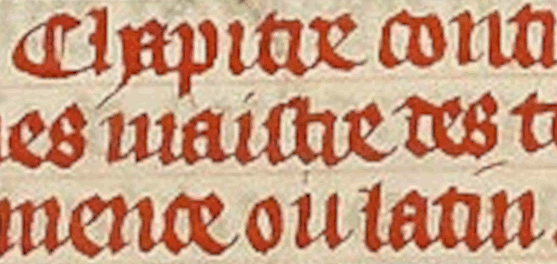 Chapitre conti
nes maistre des t
mence ou latin.